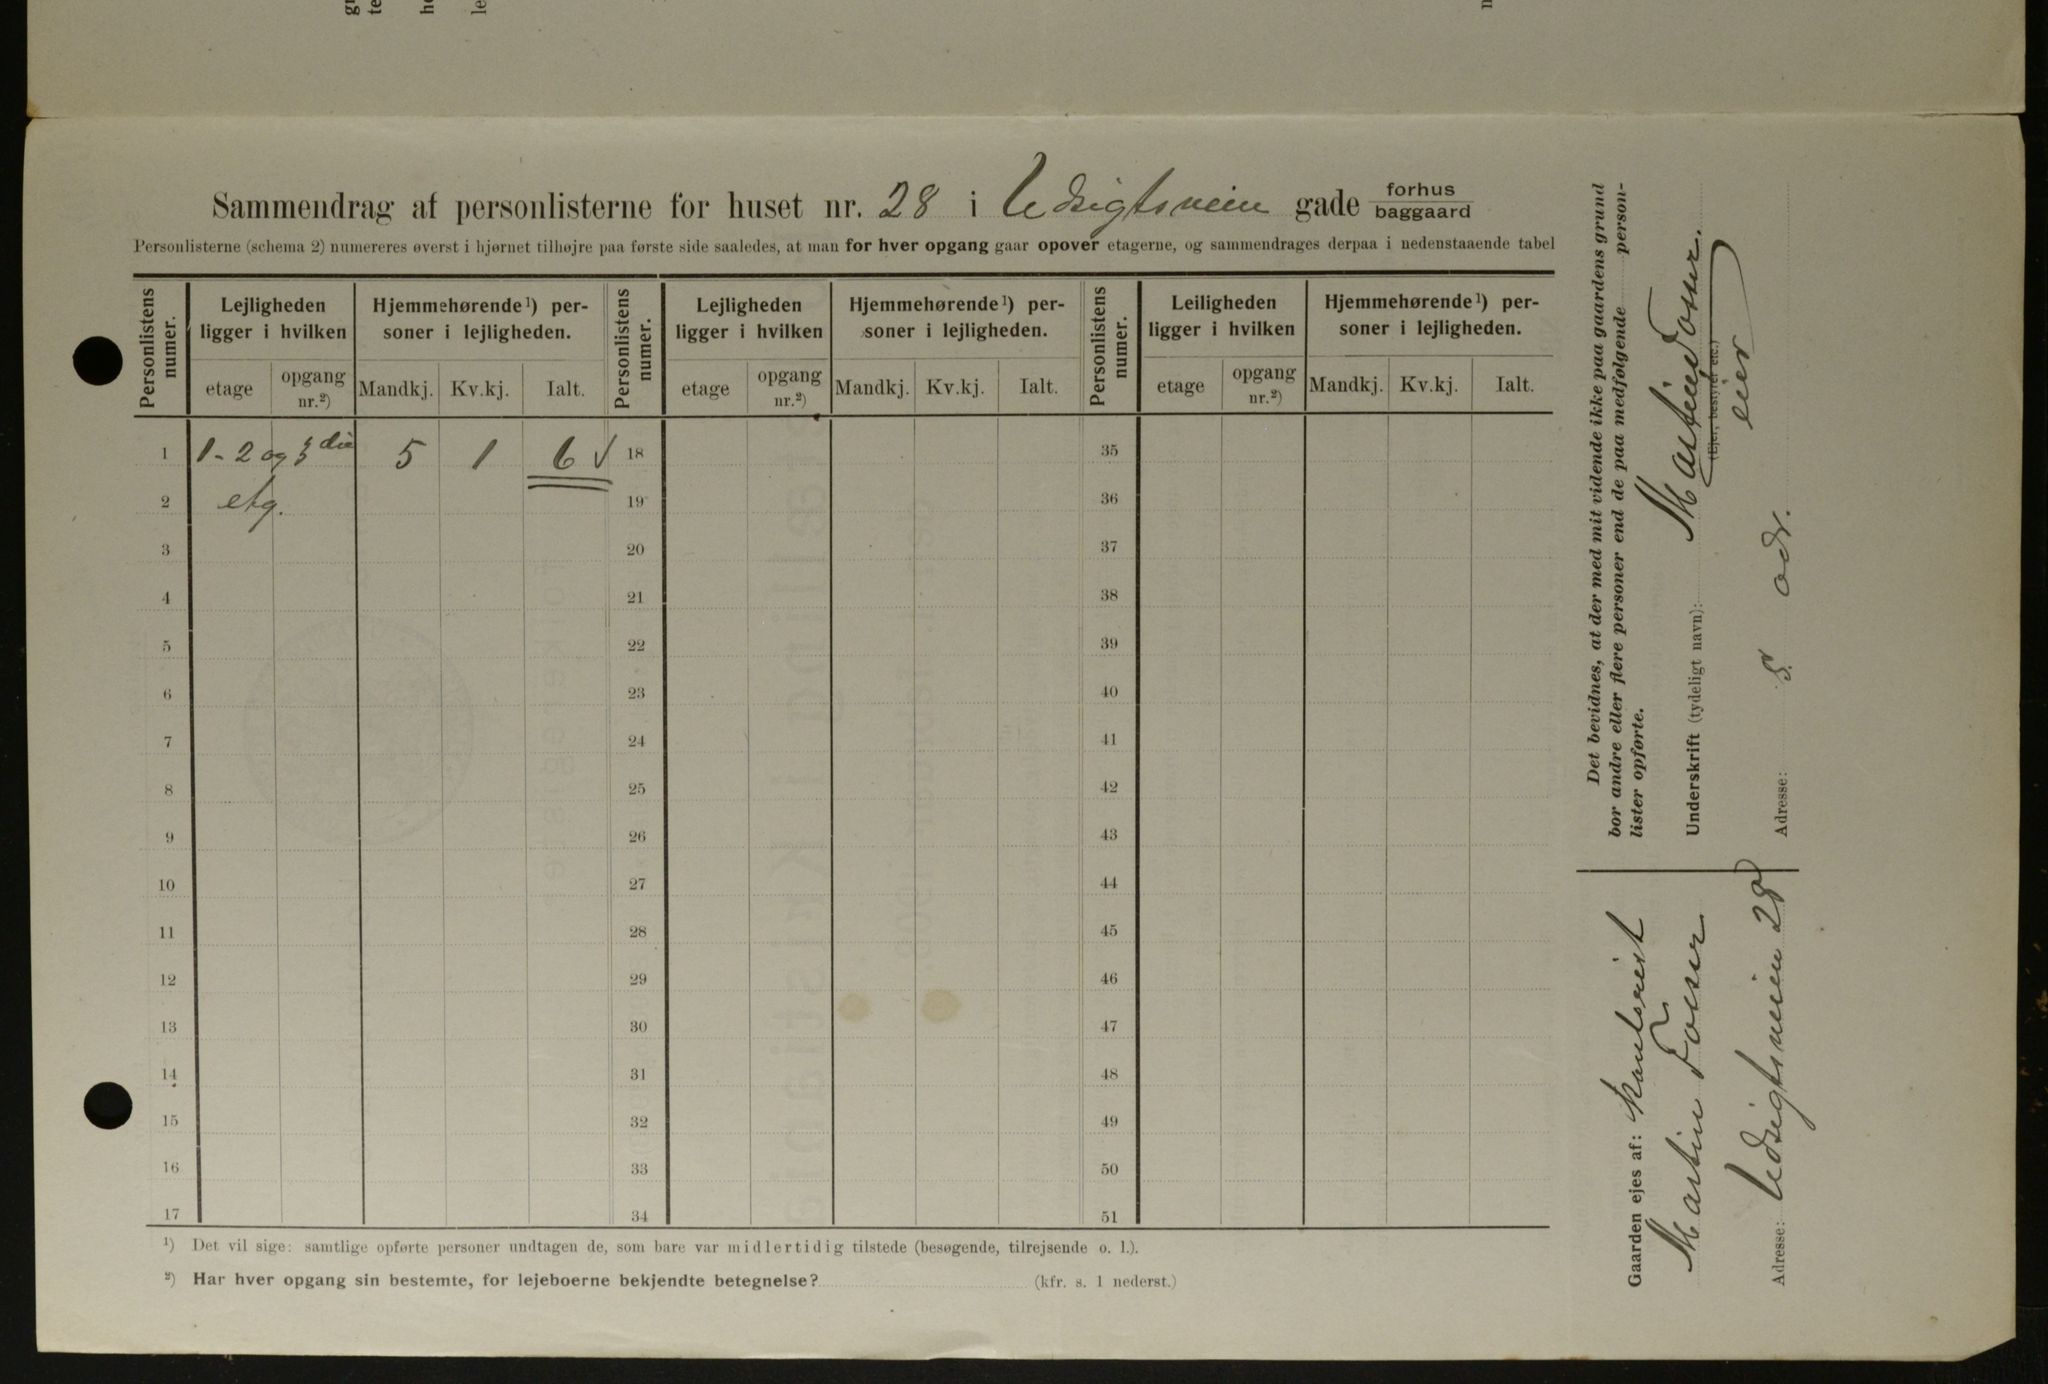 Sammendrag af personlisterne for huset nr. 28 i Udsigtsveien gade forhus baggaard
Personlisterne (schema 2) numereres øverst i hjørnet tilhøjre paa første side saaledes, at man for hver opgang gaar opover etagerne, og sammendrages derpaa i nedenstaaende tabel
Personlistens numer. Lejligheden ligger i hvilken Hjemmehørende¹) personer i lejligheden. Personlistens numer. Lejligheden ligger i hvilken Hjemmehørende¹) personer i lejligheden. Personlistens numer. Leiligheden ligger i hvilken Hjemmehørende¹) personer i lejligheden.
etage opgang nr.²) Mandkj. Kv.kj. Ialt. etage opgang nr.²) Mandkj. Kv.kj. Ialt. etage opgang nr.²) Mandkj. Kv.kj. Ialt.
1 1-2 og 3die 5 1 6 ✓ 18 35
2 etg. 19 36
3 20 37
4 21 38
5 22 39
6 23 40
7 24 41
8 25 42
9 26 43
10 27 44
11 28 45
12 29 46
13 30 47
14 31 48
15 32 49
16 33 50
17 34 51
¹) Det vil sige: samtlige opførte personer undtagen de, som bare var midlertidig tilstede (besøgende, tilrejsende o. l.).
²) Har hver opgang sin bestemte, for lejeboerne bekjendte betegnelse? (kfr. s. 1 nederst.)
Det bevidnes, at der med mit vidende ikke paa gaardens grund
bor andre eller flere personer end de paa medfølgende person-
lister opførte.
Underskrift (tydeligt navn): Martin
(Ejer, bestyrer etc.)
eier
Adresse: S. adr.
Gaarden ejes af:
Martin
Adresse: Udsigtsveien 28